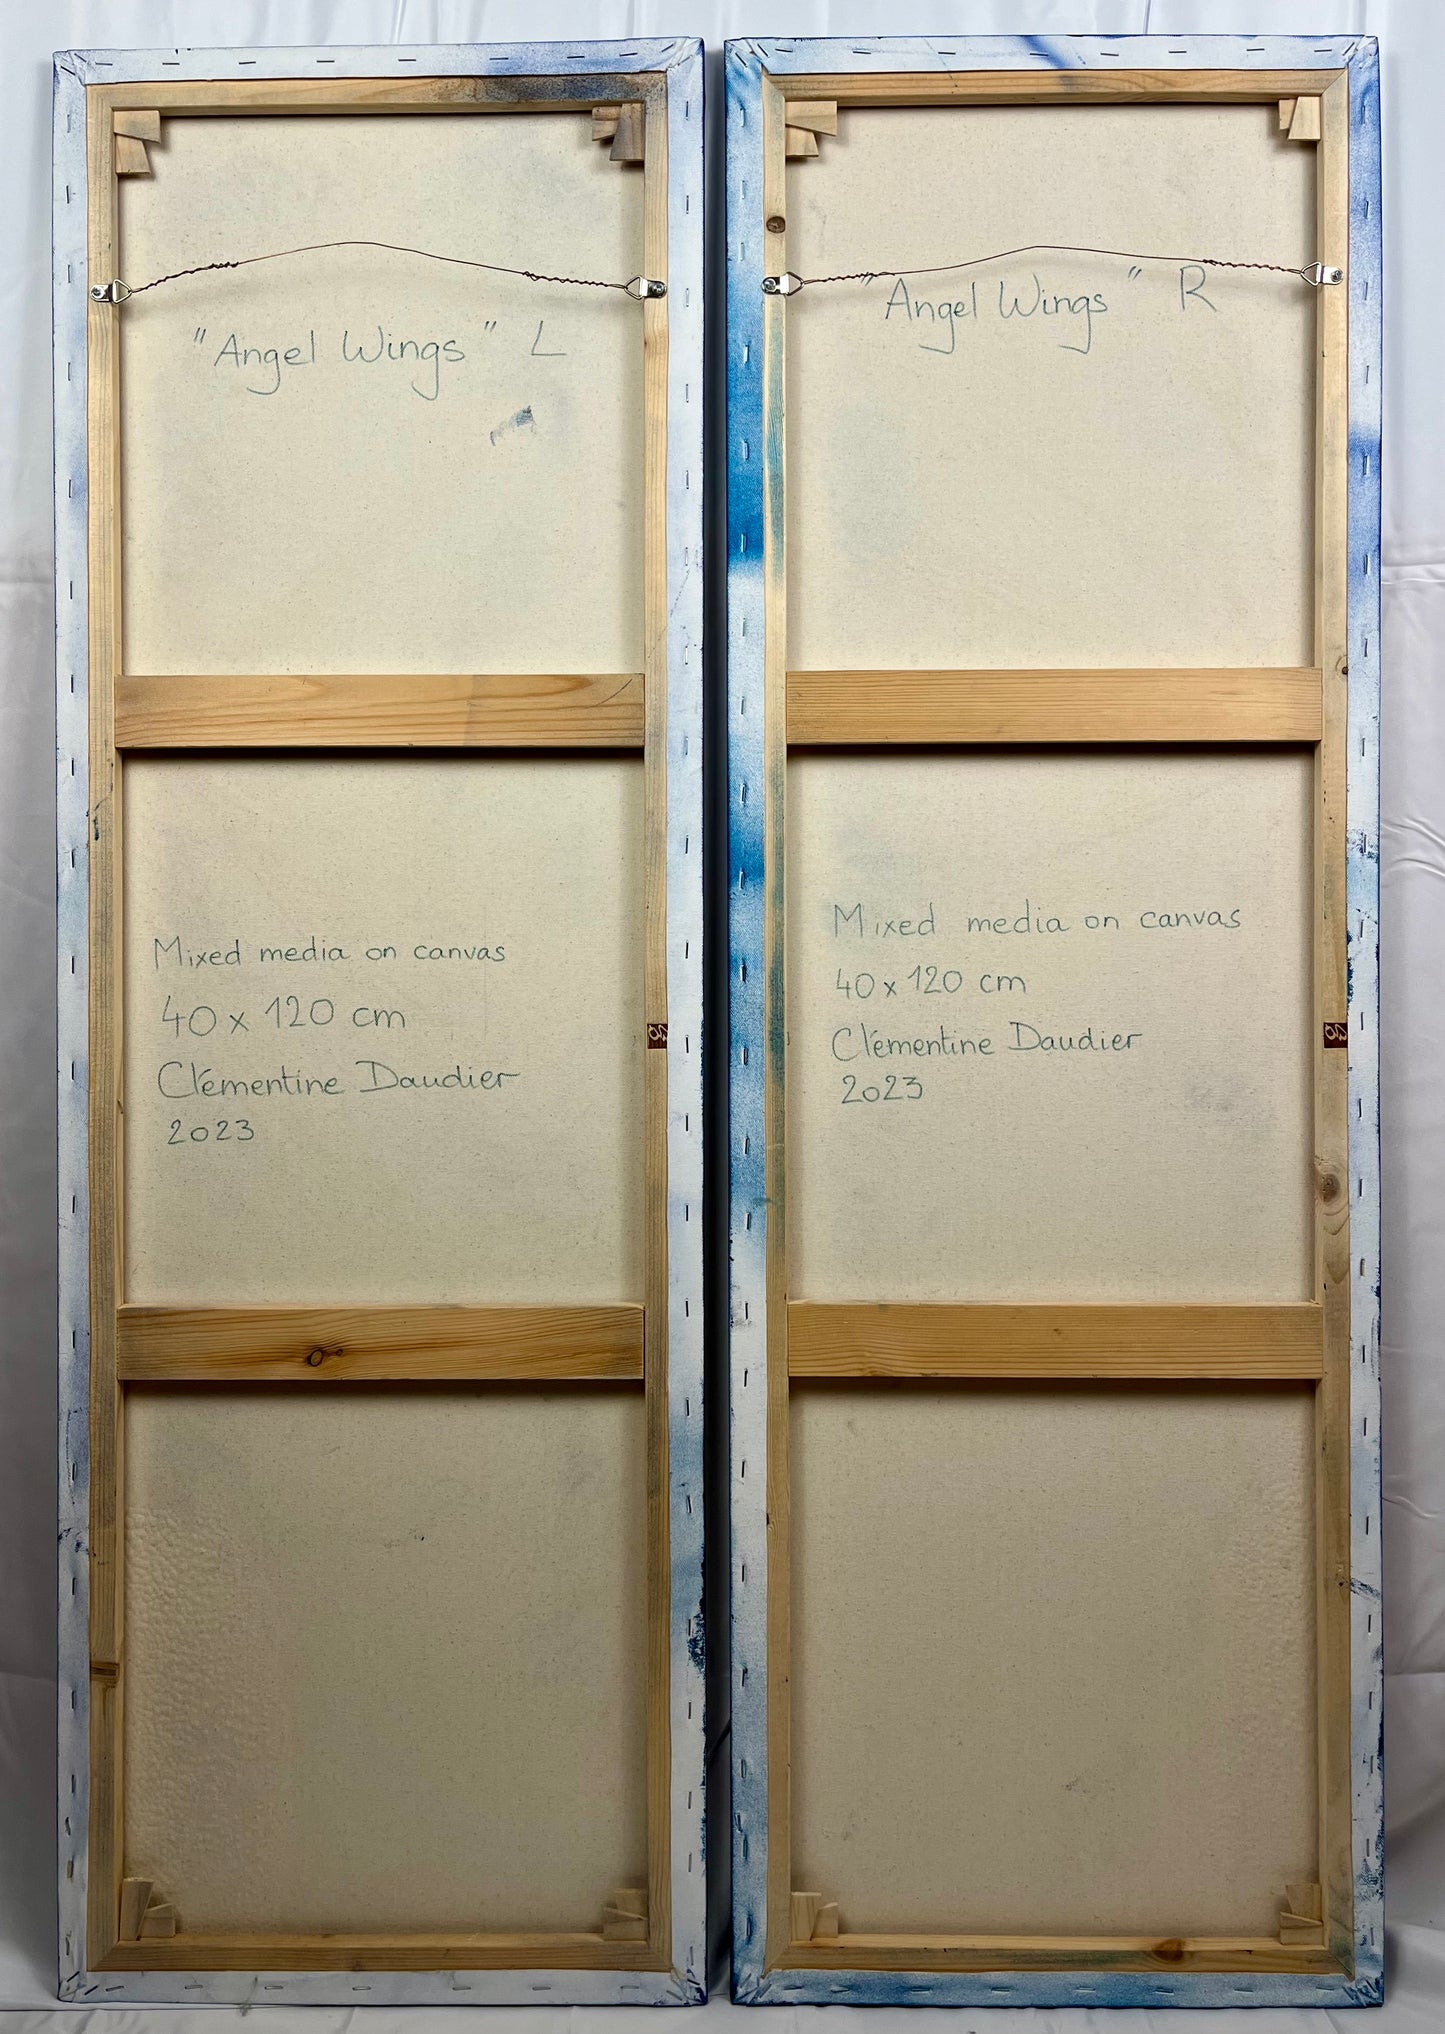 "Angel Wings" L
Mixed media on canvas
40 x 120 cm
Clémentine Daudier
2023
"Angel Wings" R
Mixed media on canvas
40 x 120 cm
Clémentine Daudier
2023